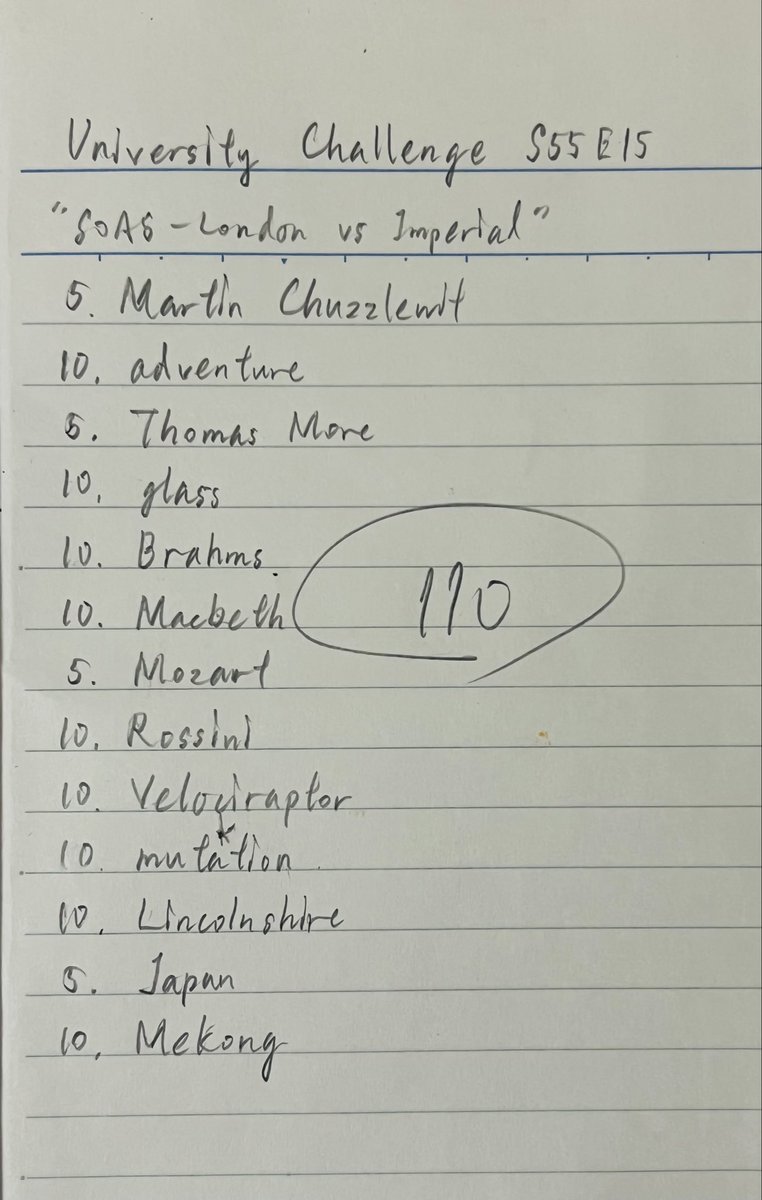 University Challenge S55 E15
"SOAS - London vs Imperial"
5. Martin Chuzzlewit
10. adventure
5. Thomas More
10. glass
10. Brahms.
10. Macbeth
110
5. Mozart
10. Rossini
10. Velociraptor
10. mutation
10. Lincolnshire
5. Japan
10. Mekong